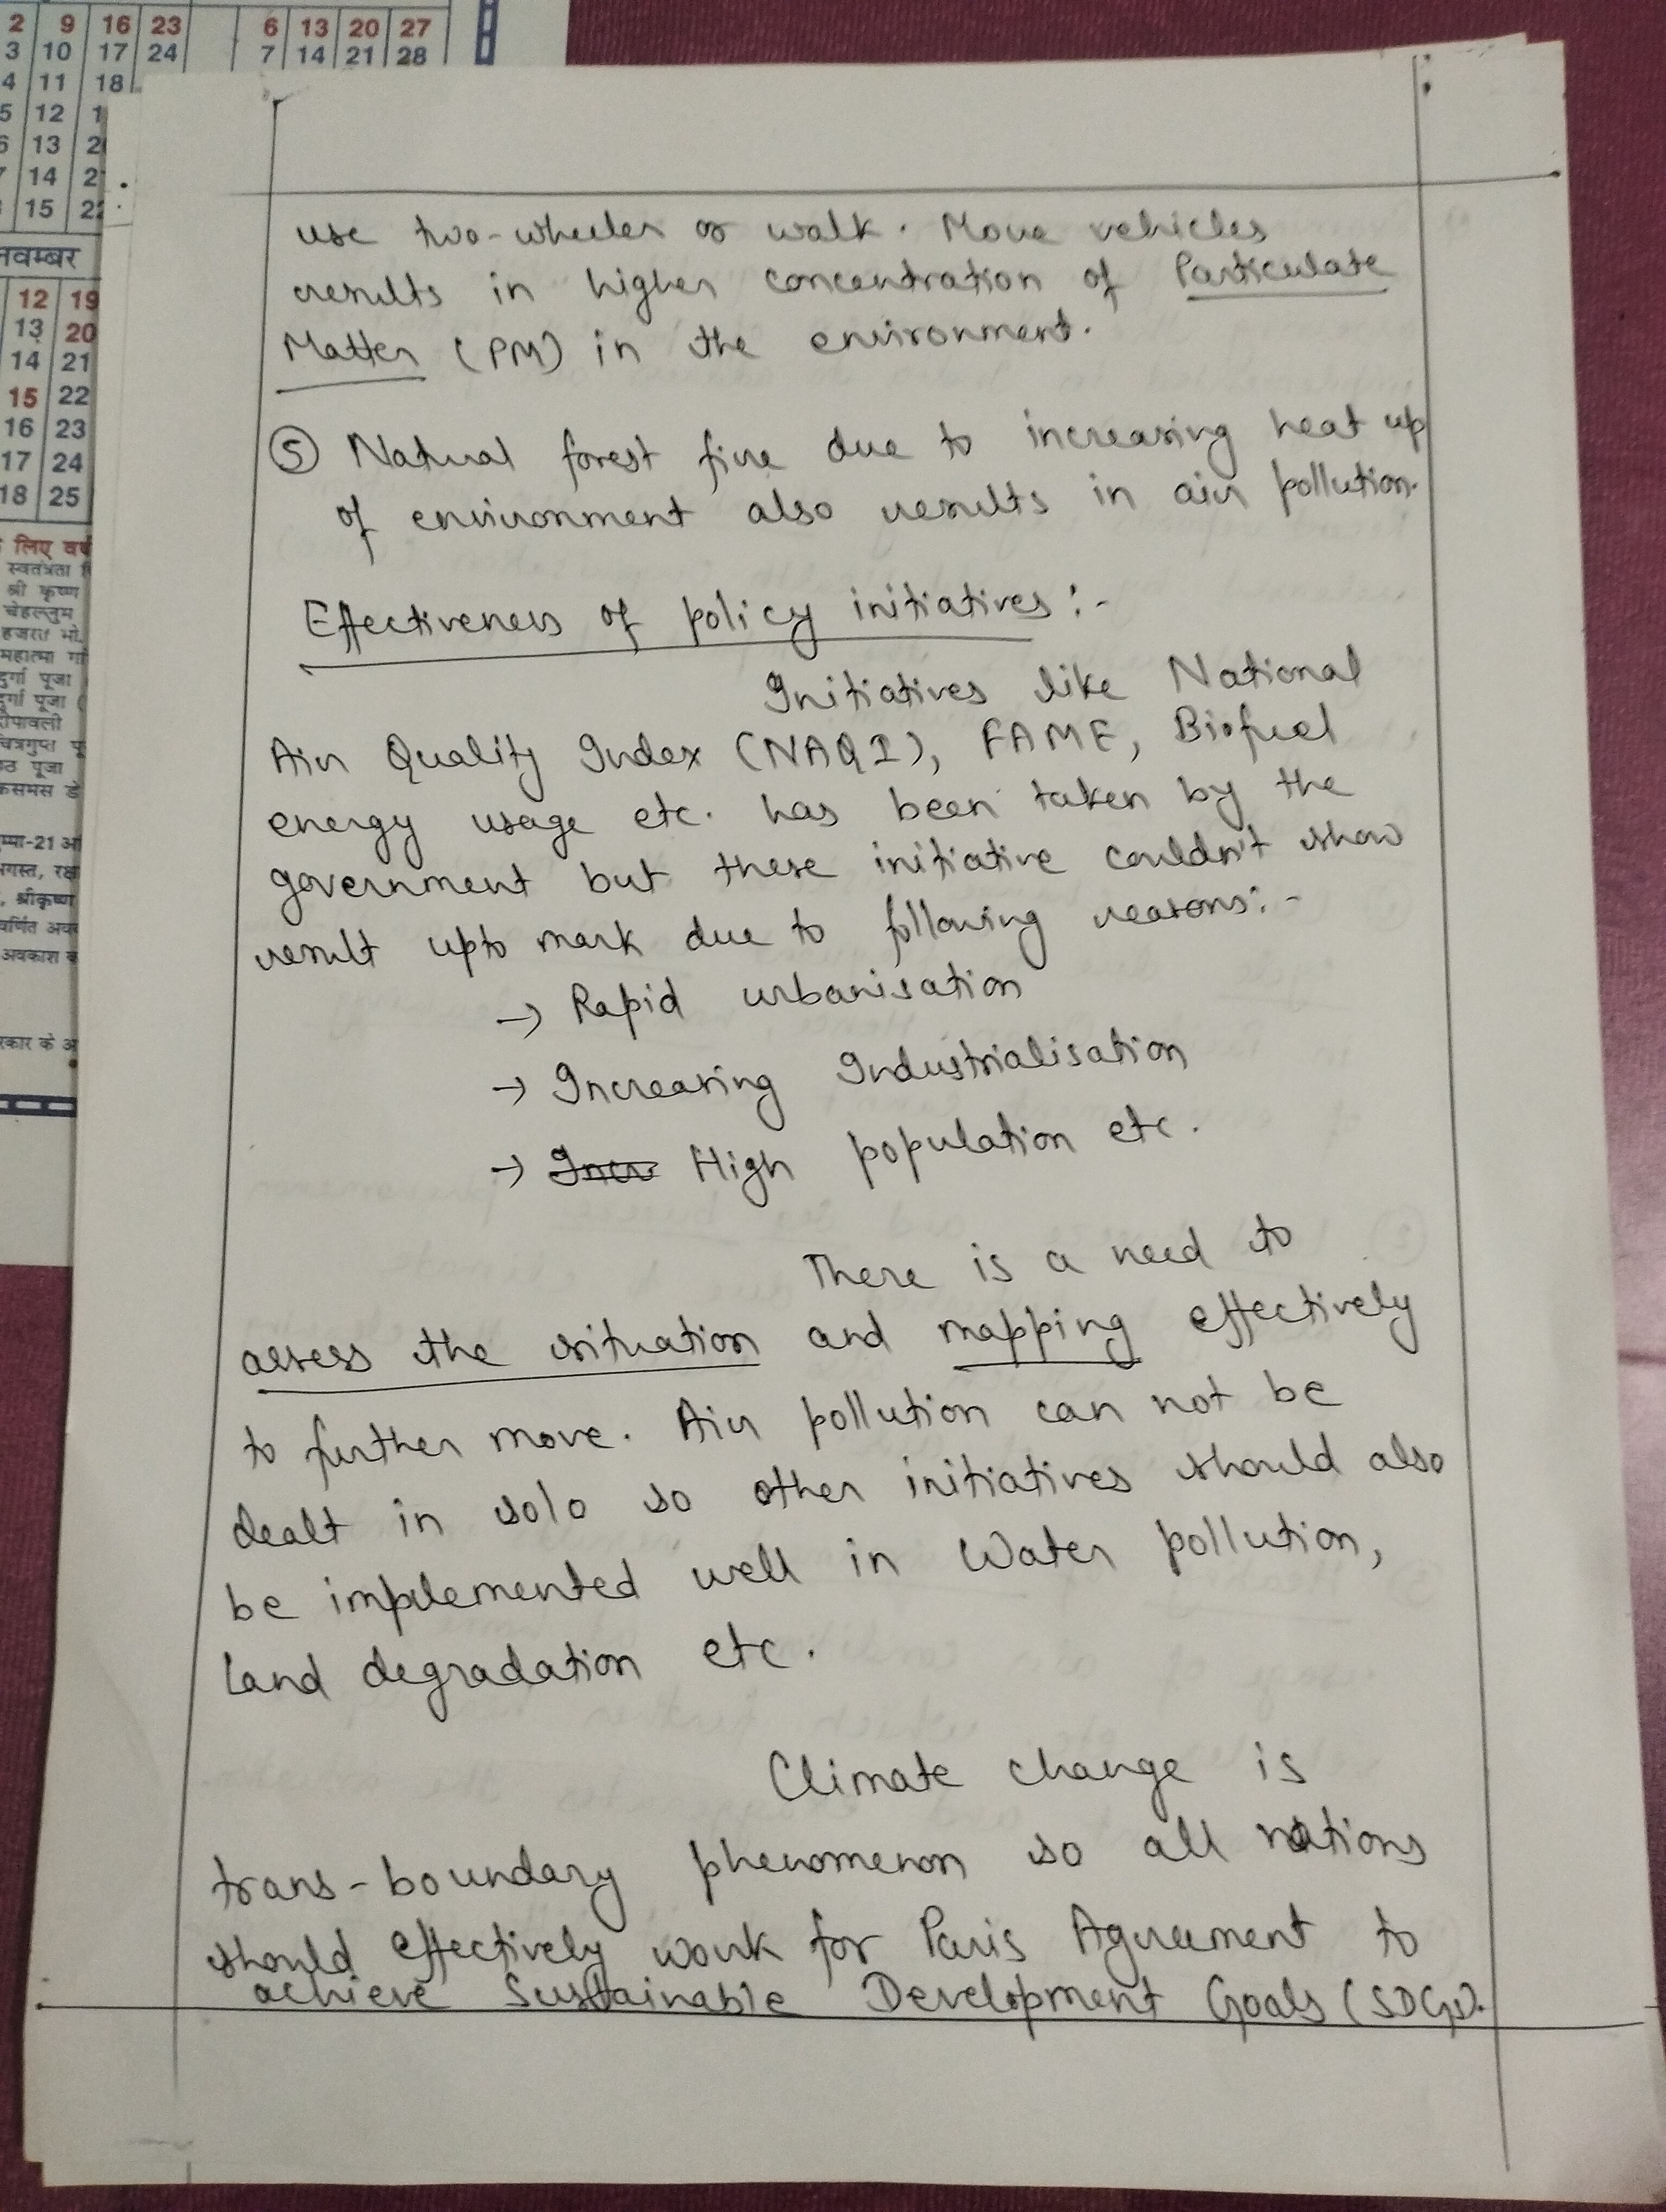 2 9 16 23 6 13 20 27
3 10 17 24 7 14 21 28
4 11 18
5 12
6 13
14
15
नवम्बर
12 19
13 20
14 21
15 22
16 23
17 24
18 25
लिए
स्वतंत्रता
श्री कृष्ण
चेहल्लुम
हजरत
महात्मा
दुर्गा पूजा
दुर्गा पूजा
दीपावली
चित्रगुप्त
पूजा
use two-wheeler or walk. More vehicles
results in higher concentration of Particulate
Matter (PM) in the environment.
⑤ Natural forest fire due to increasing heat up
of environment also results in air pollution.
Effectiveness of policy initiatives:-
Initiatives like National
Air Quality Index (NAQI), FAME, Biofuel
energy usage etc. has been taken by the
government but these initiative couldn't show
result upto mark due to following reasons:-
→ Rapid urbanisation
→ Increasing Industrialisation
→ Incr High population etc.
There is a need to
assess the situation and mapping effectively
to further move. Air pollution can not be
dealt in solo so other initiatives should also
be implemented well in Water pollution,
land degradation etc.
Climate change is
trans-boundary phenomenon so all nations
should effectively work for Paris Agreement to
achieve Sustainable Development Goals (SDGs).